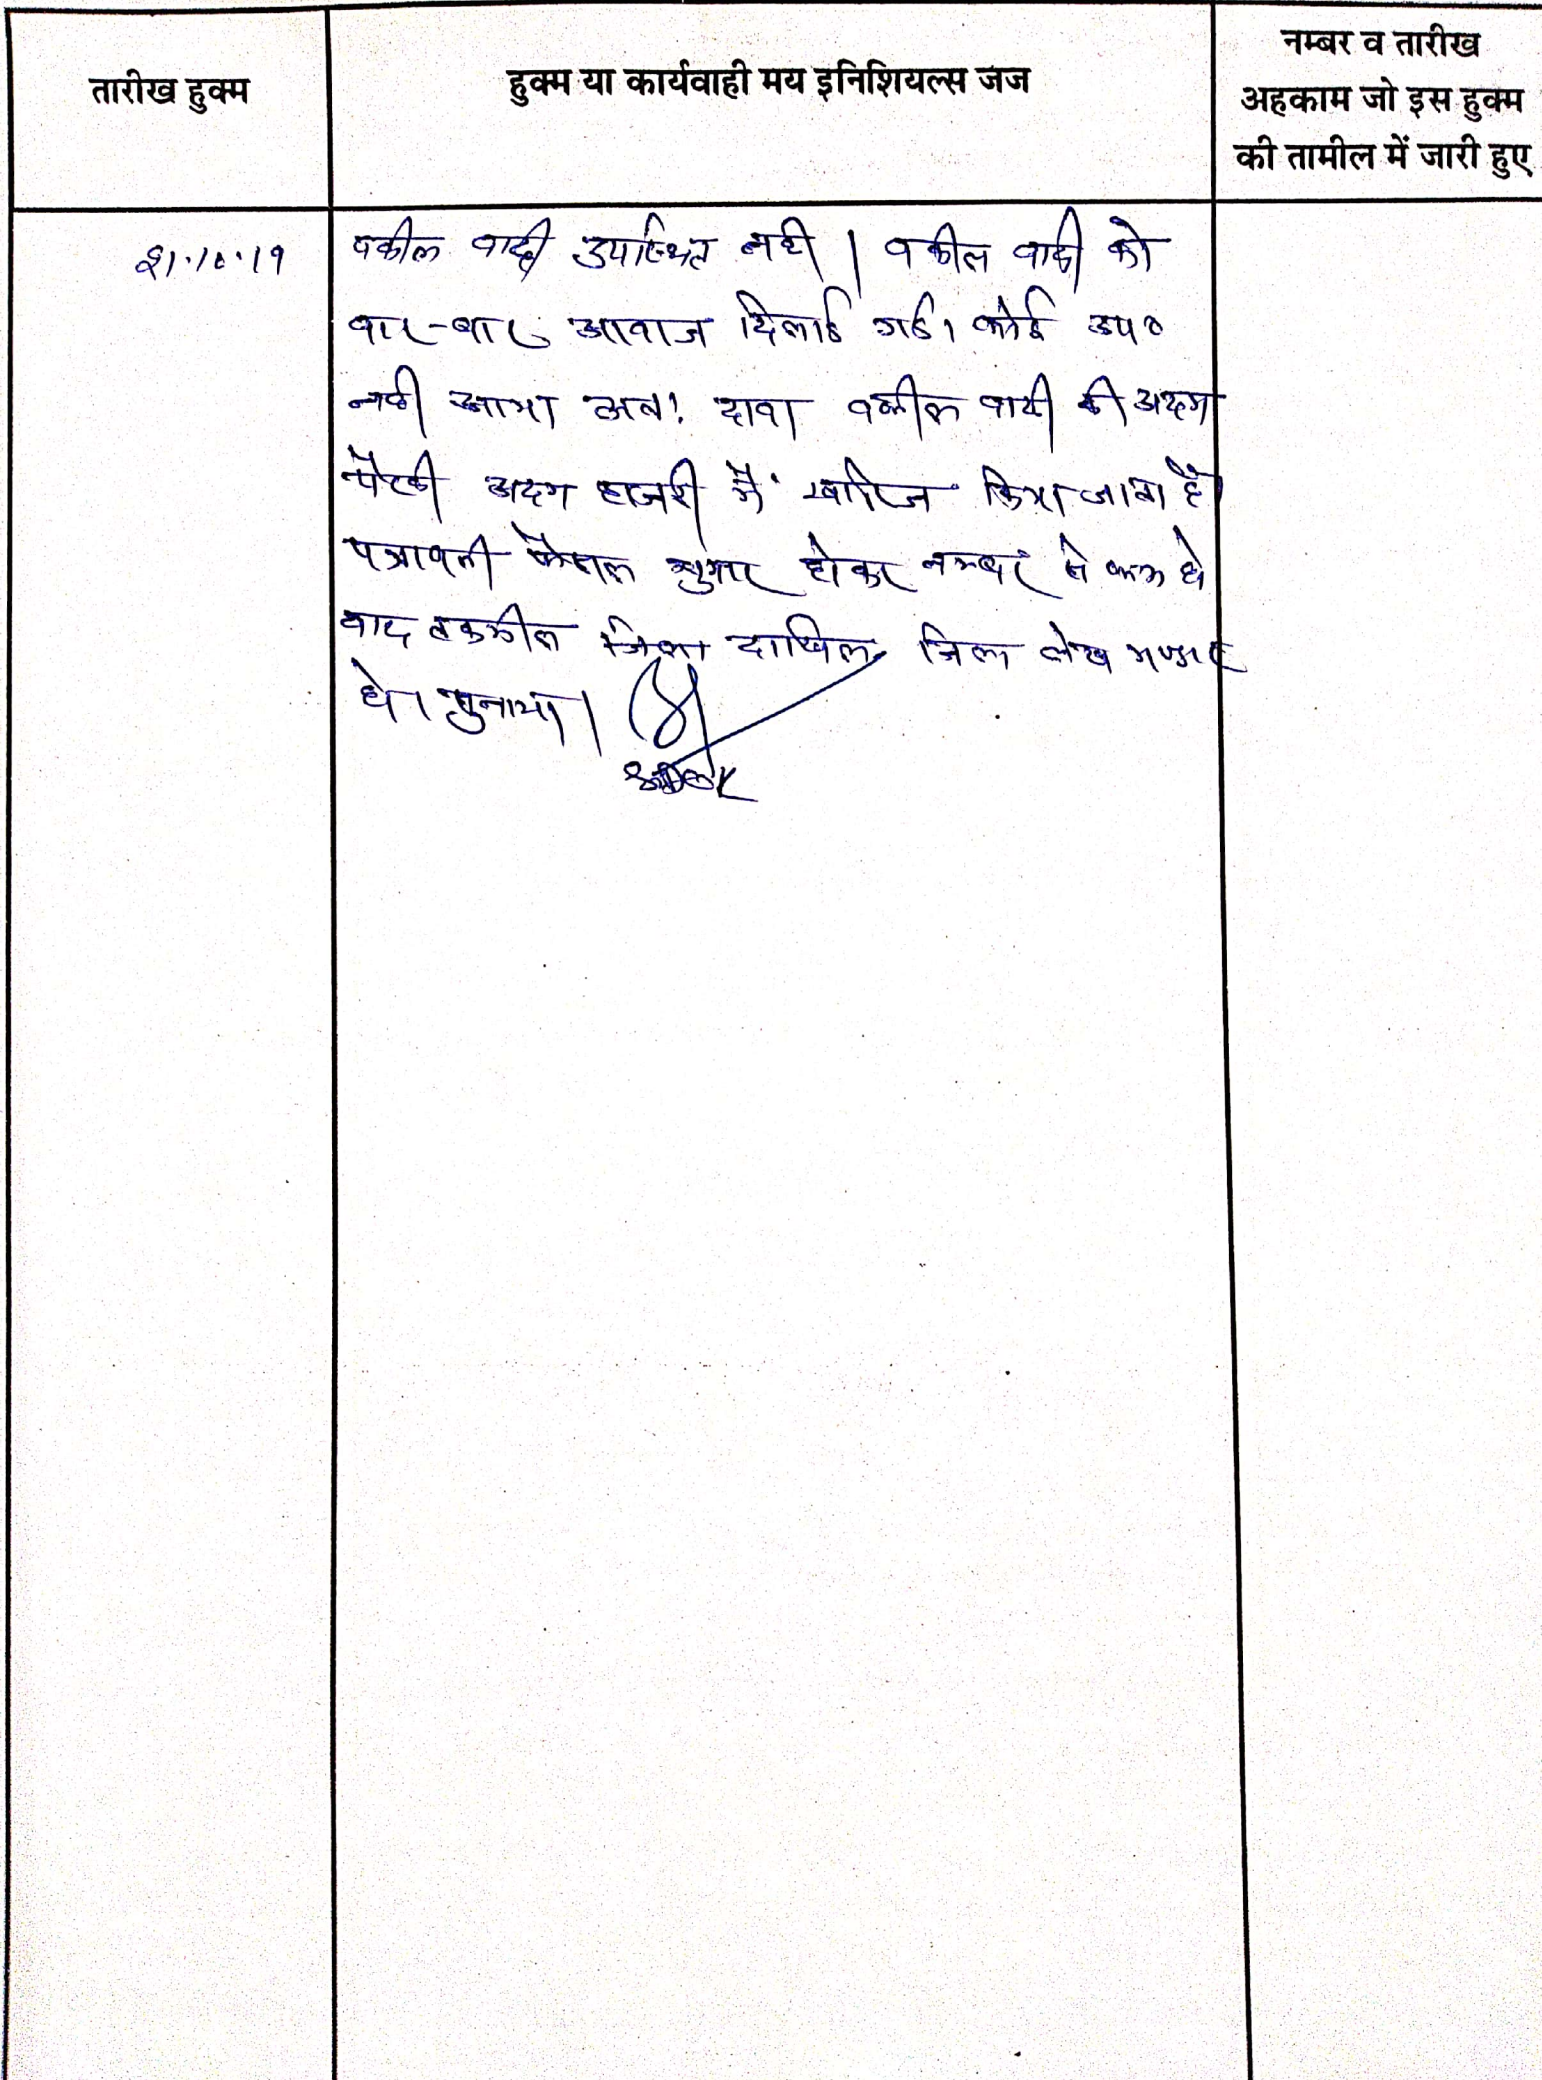 तारीख हुक्म
हुक्म या कार्यवाही मय इनिशियल्स जज
नम्बर व तारीख
अहकाम जो इस हुक्म
की तामील में जारी हुए
वकील वादी उपस्थित नही । वकील वादी को
बार-बार आवाज दिलाई गई। कोई उप०
नही आया अत: दावा वकील वादी की अदम
पैरवी अदम हाजरी में खारिज किया जाता है
पत्रावली फैसल शुमार होकर नम्बर से कम हो
बाद तकमील दाखिल जिला लेख भण्डार
हो। सुनाया।